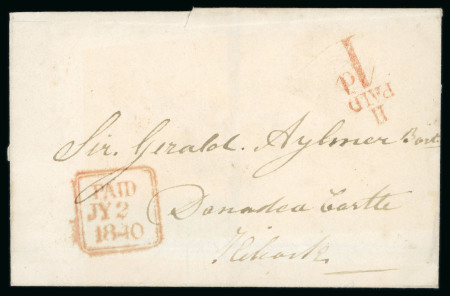 1d
PAID
H
Sir. Gerald. Aylmer Bart
PAID
JY 2
1840
Donadea Castle
Kilcock